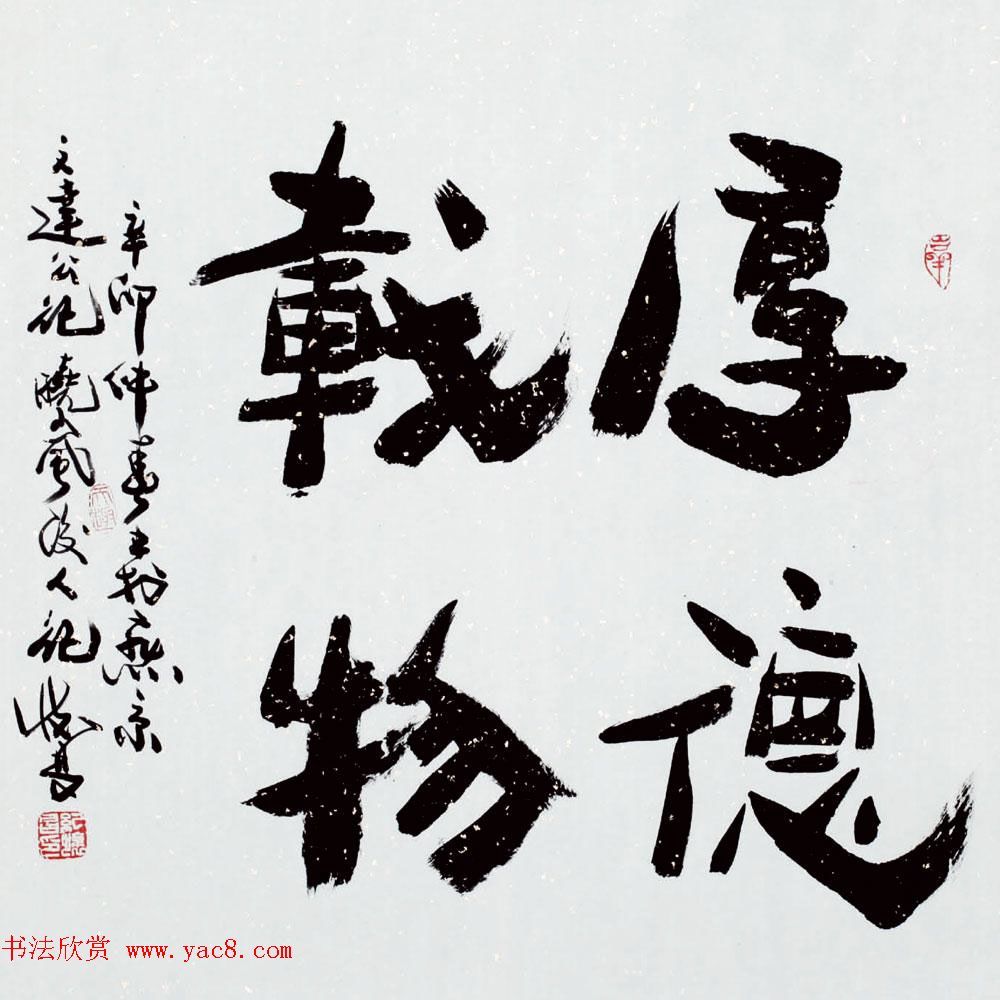 厚德
載物
辛卯仲春月於燕京
文達公紀曉嵐後人紀
书法欣赏 www.yac8.com